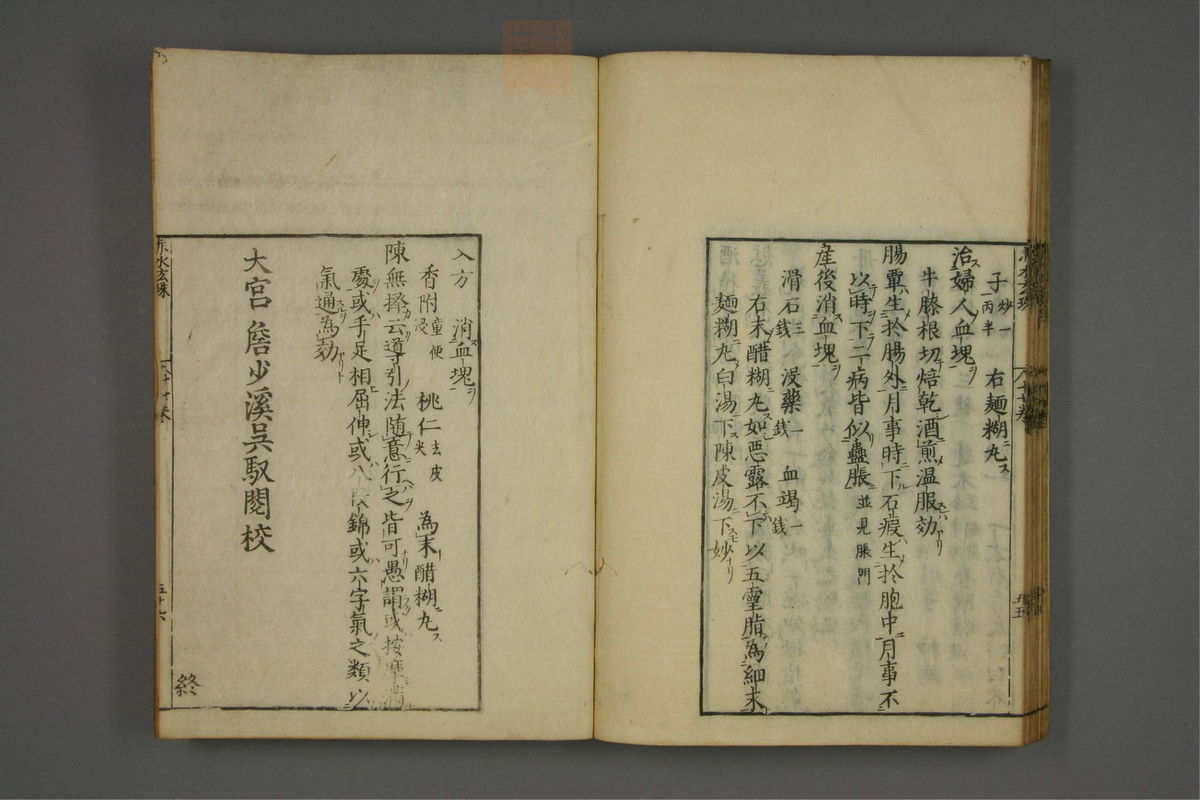 子炒一兩半 右麺糊丸ス
治婦人血塊ヲ
牛膝根切焙乾酒煎温服効アリ
腸覃生於腸外月事時下石瘕生於胞中月事不
以時下二病皆似蠱脹並見脹門
産後消血塊ヲ
滑石三錢 没藥一錢 血竭一錢
右末醋糊丸如悪露不下以五靈脂為細末
麺糊丸白湯下陳皮湯下妙ナリ
五十五
又方 消血塊ヲ
香附童便浸 桃仁去皮尖 為末醋糊丸ス
陳無擇云導引法随意行之皆可愚謂或按摩満
處或手足相屈伸或八段錦或六字氣之類以
氣通為効
大宮詹少溪呉馭閲校
赤水玄珠
五十六
終